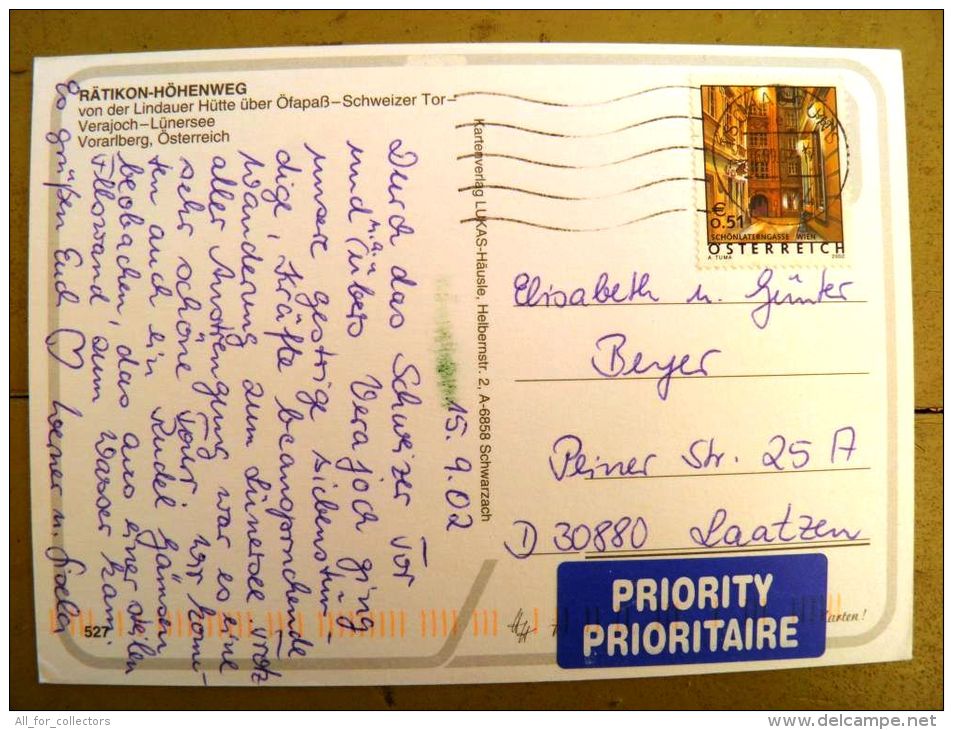 RÄTIKON-HÖHENWEG
von der Lindauer Hütte über Öfapaß–Schweizer Tor–
Verajoch–Lünersee
Vorarlberg, Österreich
15. 9. 02
Durch das Schweizer Tor
und über's Verajoch ging
unsere gestrige siebenstün-
dige, Kräfte beanspruchende
Wanderung zum Lünersee. Trotz
aller Anstrengung war es eine
sehr schöne Tour. Wir konn-
ten auch ein Rudel Gämsen
beobachten, das aus einer steilen
Felswand zum Wasser kam.
Es grüßen Euch ♡ Werner u.
527
Kartenverlag LUKAS-Häusle, Helbernstr. 2, A-6858 Schwarzach
€ 0.51
SCHÖNLATERNGASSE WIEN
ÖSTERREICH
A. TUMA 2002
Elisabeth u. Günter
Beyer
Peiner Str. 25 A
D 30880 Laatzen
PRIORITY
PRIORITAIRE
Karten!
All_for_collectors
www.delcampe.net